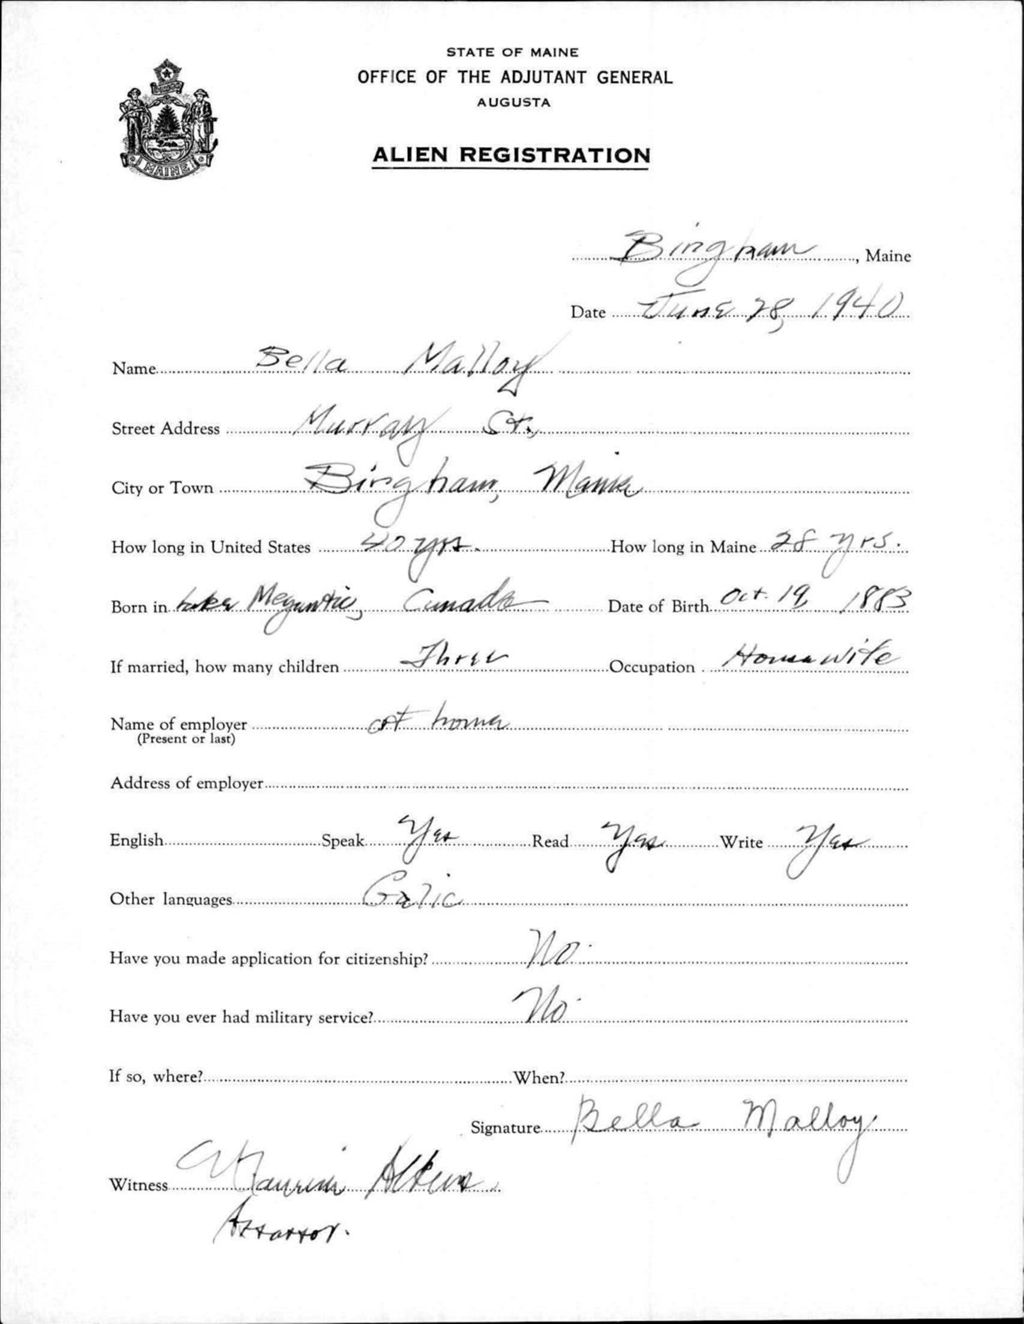 STATE OF MAINE
OFFICE OF THE ADJUTANT GENERAL
AUGUSTA
ALIEN REGISTRATION
MAINE
Bingham, Maine
Date June 28, 1940
Name Bella Malloy
Street Address Murray St.,
City or Town Bingham, Maine
How long in United States 40 yrs. How long in Maine 28 yrs.
Born in Lake Megantic, Canada Date of Birth Oct. 19, 1883
If married, how many children Three Occupation Housewife
Name of employer at home
(Present or last)
Address of employer
English Speak Yes Read Yes Write Yes
Other languages Galic
Have you made application for citizenship? No
Have you ever had military service? No
If so, where? When?
Signature Bella Malloy
Witness
Assessor.